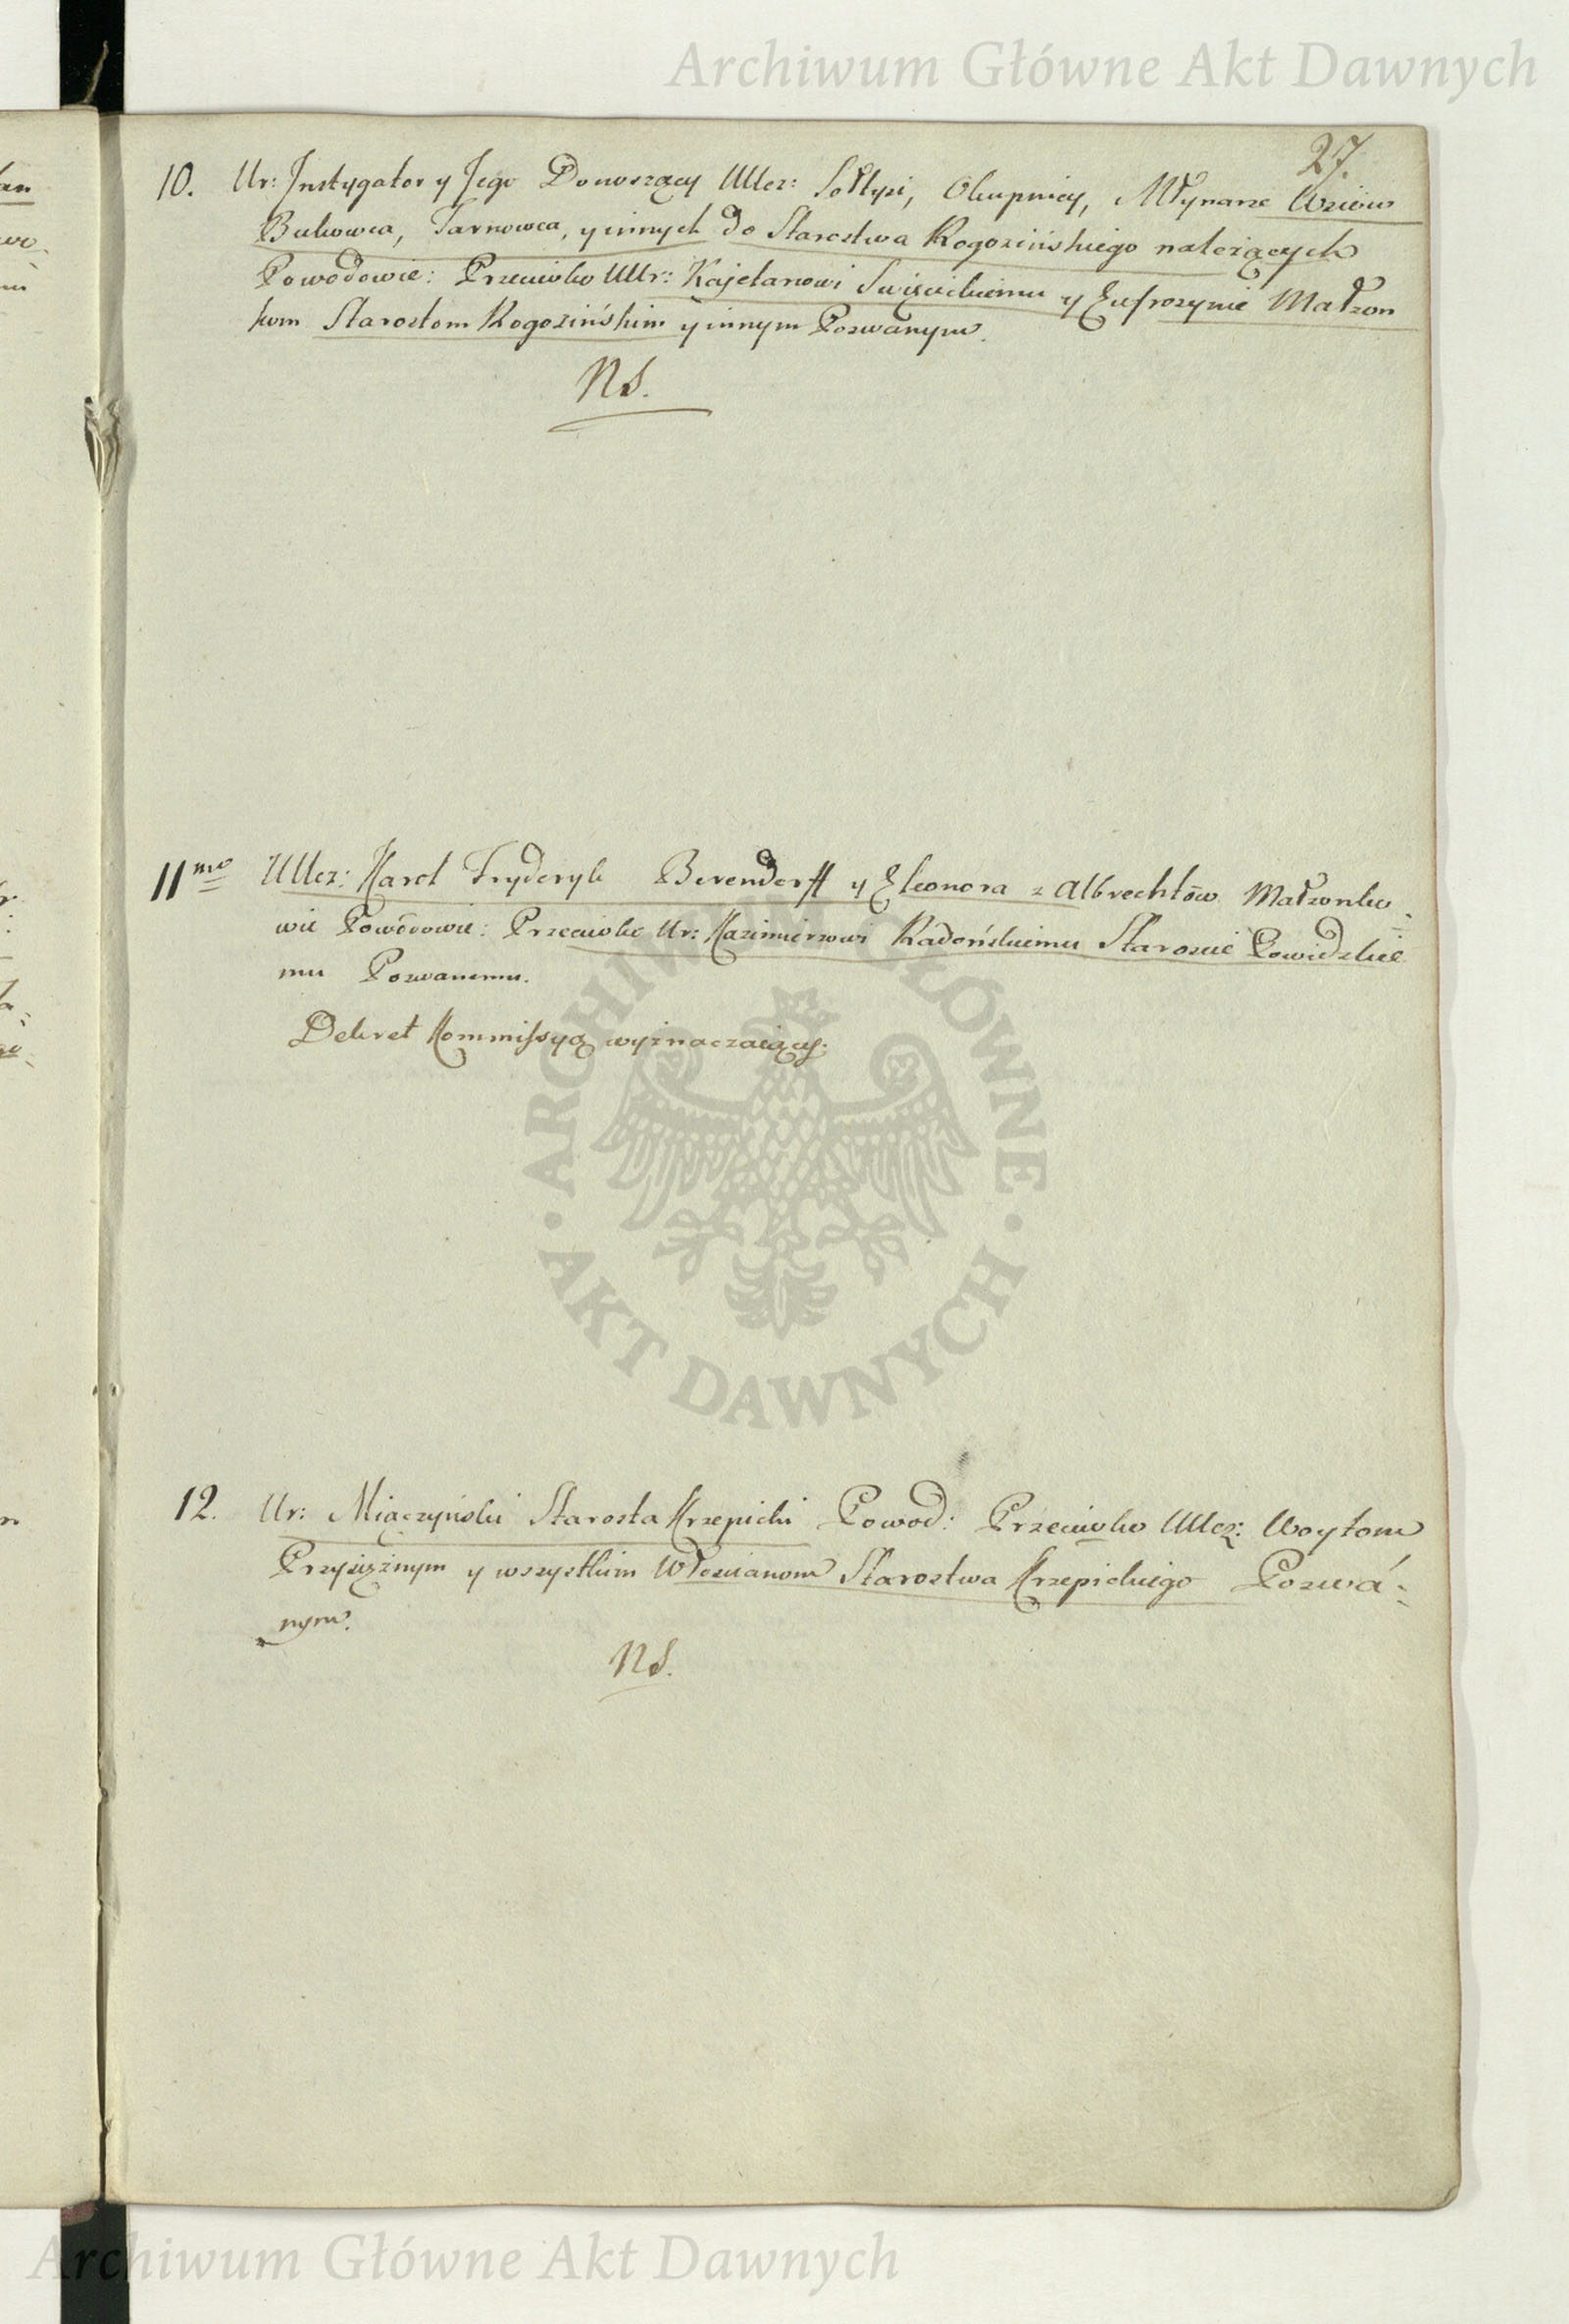 Archiwum Główne Akt Dawnych
27.
10. Ur: Instygator y Jego Donoszący UUcz: Sołtysi, Okupnicy, Młynarze Wsiów
Bukowca, Tarnowca, y innych do Starostwa Rogozińskiego należących
Powodowie: Przeciwko UUr: Kajetanowi Swięcickiemu y Eufrozynie Małżon
kom Starostom Rogozińskim y innym Pozwanym.
NS.
11mo UUcz: Karol Fryderyk Berendorff y Eleonora z Albrechtów Małżonko
wie Powodowie: Przeciwko Ur: Kazimierzowi Radońskiemu Staroscie Powidzkie
mu Pozwanemu.
Dekret Kommissyą wyznaczaiący.
12. Ur: Miączyński Starosta Krzepicki Powod: Przeciwko UUcz: Woytom
Przysiężnym y wszystkim Włoscianom Starostwa Krzepickiego Pozwá:
nym.
NS.
ARCHIWUM GŁÓWNE
AKT DAWNYCH
Archiwum Główne Akt Dawnych